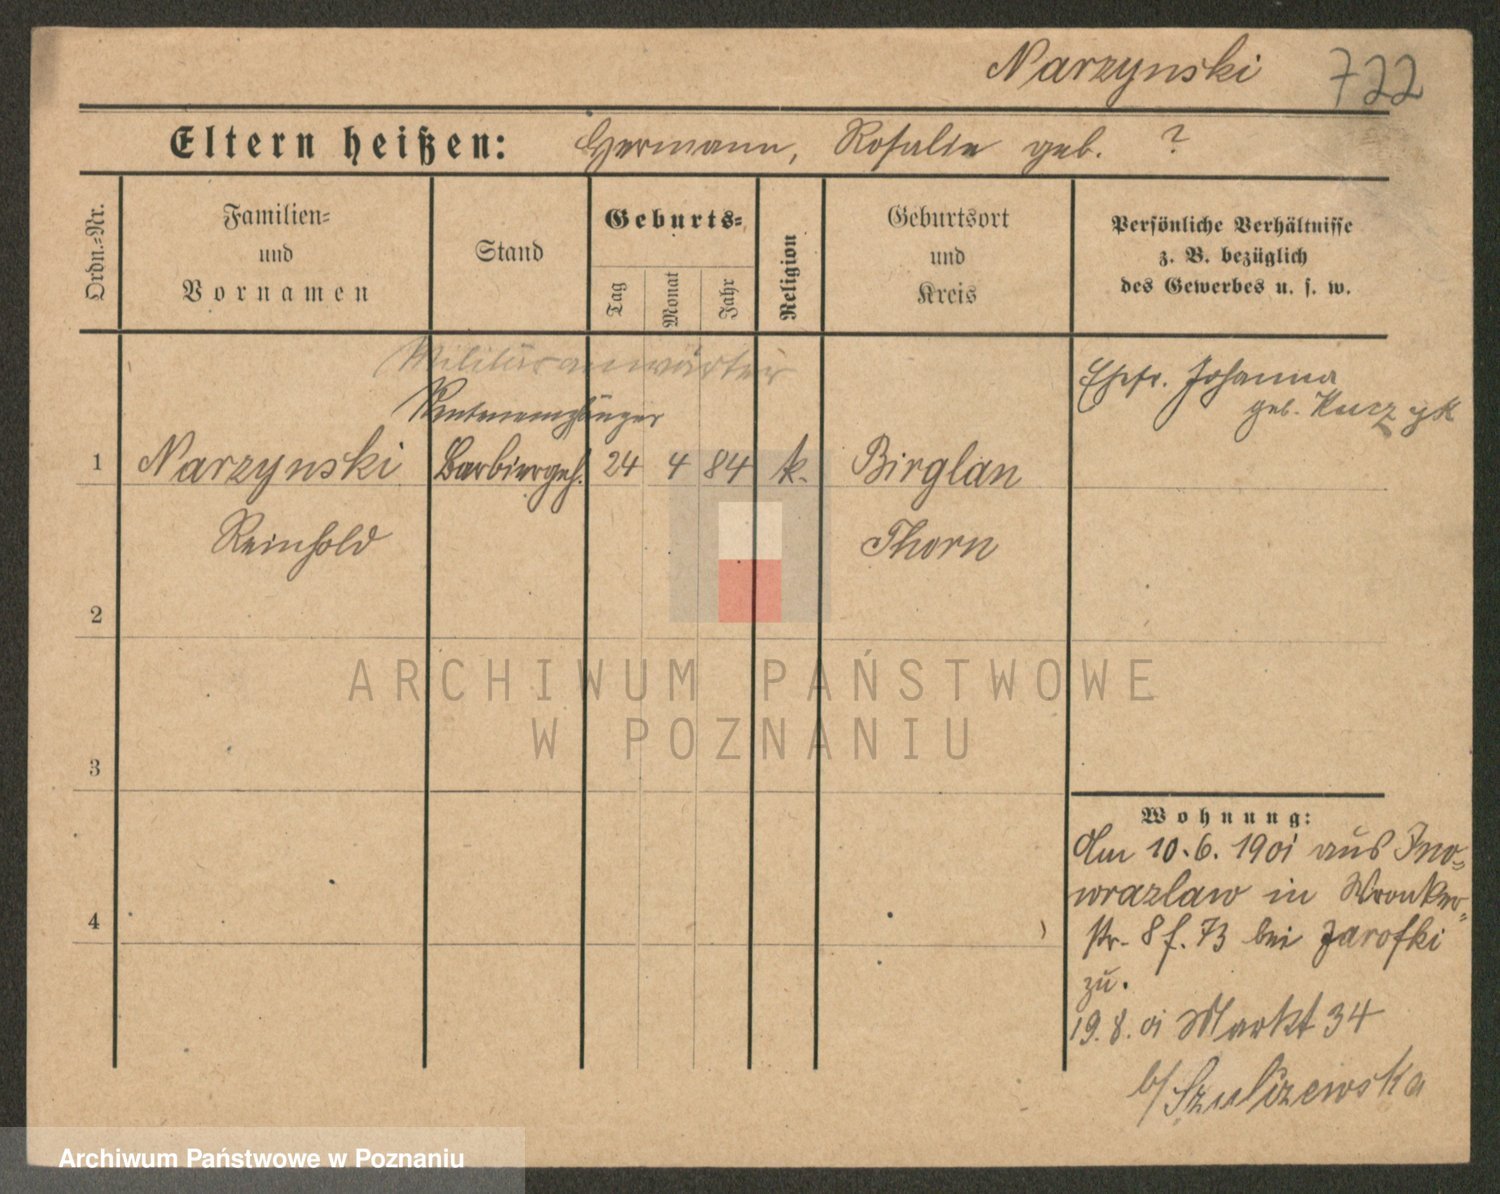 Narzynski 722
Eltern heißen: Hermann, Rosalie geb. ?
Ordn.=Nr.
Familien=
und
Vornamen
Stand
Geburts=
Tag
Monat
Jahr
Religion
Geburtsort
und
Kreis
Persönliche Verhältnisse
z. B. bezüglich
des Gewerbes u. s. w.
Militäranwärter
Rentenempfänger
Ehefr. Johanna
geb. Kurzyk
1 Narzynski Barbiergeh. 24 4 84 k. Birglau
Reinhold Thorn
2
3
4
Wohnung:
Am 10.6.1901 aus Ino=
wrazlaw in Wronker=
str. 8 f. 73 bei Jarofki
zu.
19.8.01 Markt 34
b/ Szulczewska
ARCHIWUM PAŃSTWOWE
W POZNANIU
Archiwum Państwowe w Poznaniu